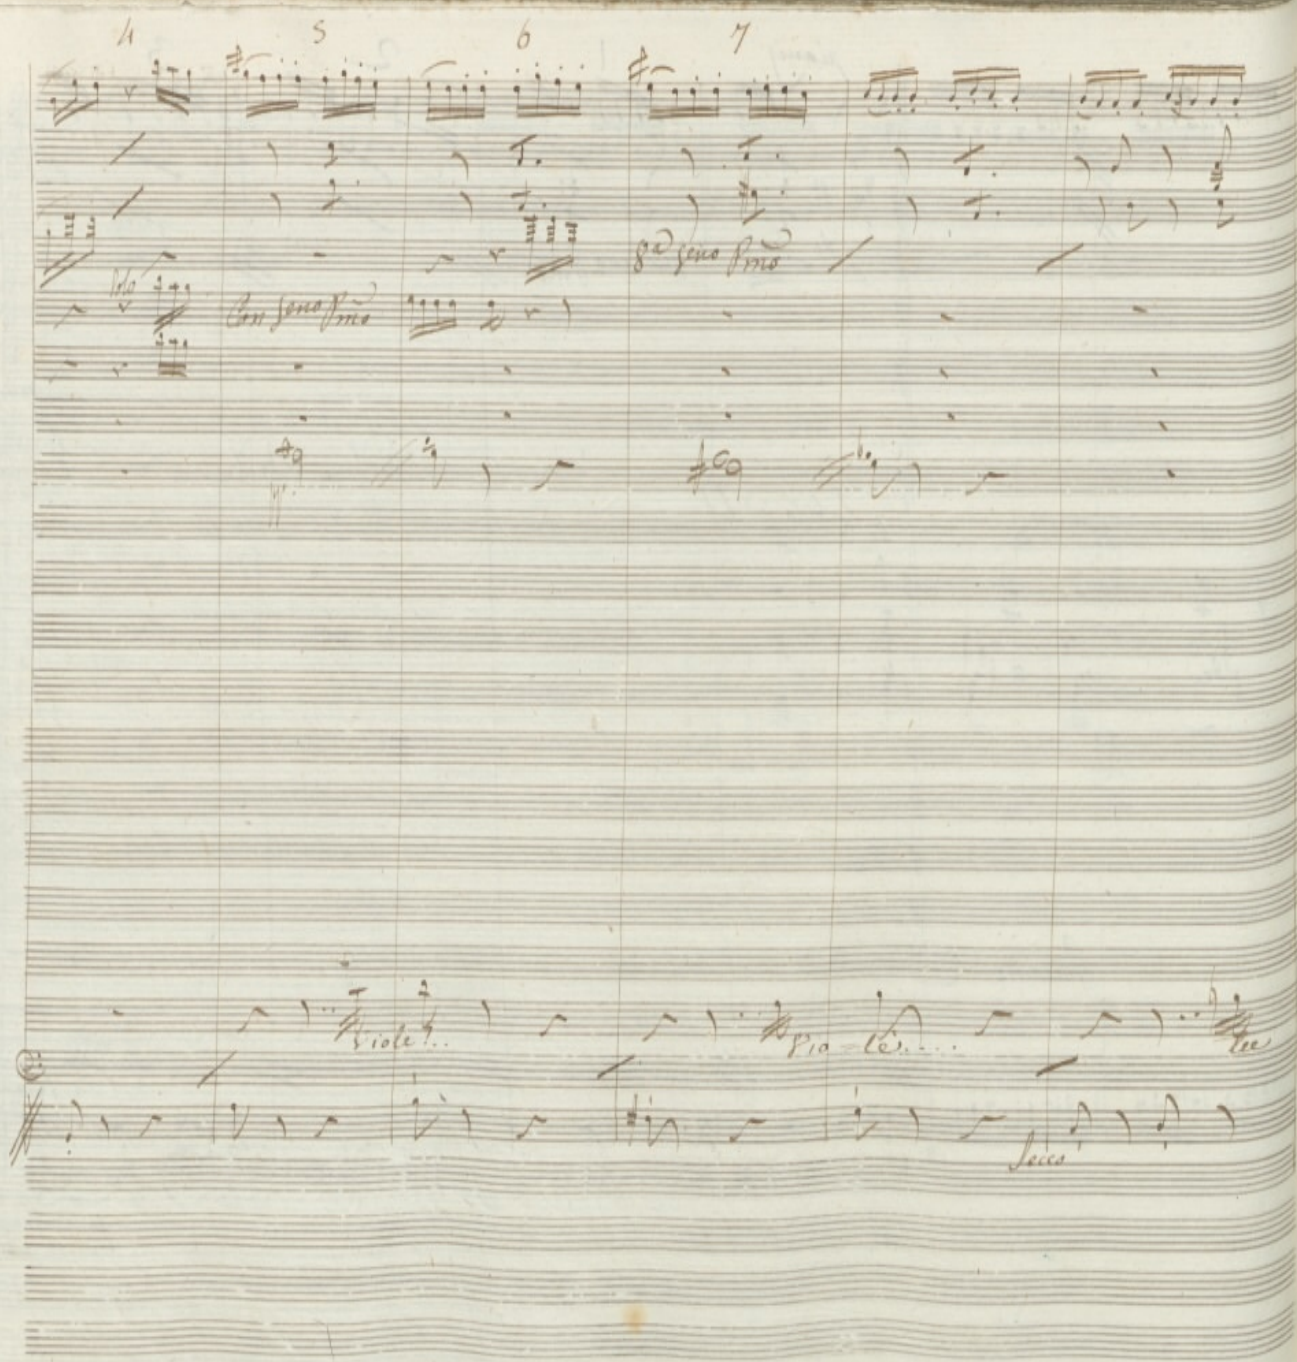 4 5 6 7
Solo
8ª seno Pmo
Con seno Pmo
Viole?..
Vio-le....
Secco